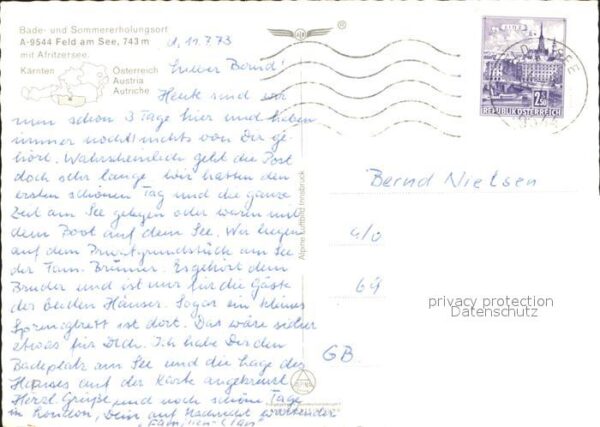 Bade- und Sommererholungsort
A-9544 Feld am See, 743 m
mit Afritzersee.
Kärnten
Österreich
Austria
Autriche
d. 11.7.73
Lieber Bernd!
Heute sind wir
nun schon 3 Tage hier und haben
immer noch nichts von Dir ge-
hört. Wahrscheinlich geht die Post
doch sehr lange. Wir hatten den
ersten schönen Tag und die ganze
Zeit am See gelegen oder waren mit
dem Boot auf dem See. Wir liegen
auf dem Privatgrundstück am See
der Fam. Brunner. Es gehört dem
Bruder und ist nur für die Gäste
der beiden Häuser. Sogar ein kleines
Sprungbrett ist dort. Das wäre sicher
etwas für Dich. Ich habe Dir den
Badeplatz am See und die Lage des
Hauses auf der Karte angekreuzt.
Herzl. Grüße und noch schöne Tage
in London, Dein auf Nachricht wartender
"Familien-Clan"
Alpine Luftbild Innsbruck
REPUBLIK ÖSTERREICH
Bernd Nielsen
c/o
69
GB.
privacy protection
Datenschutz